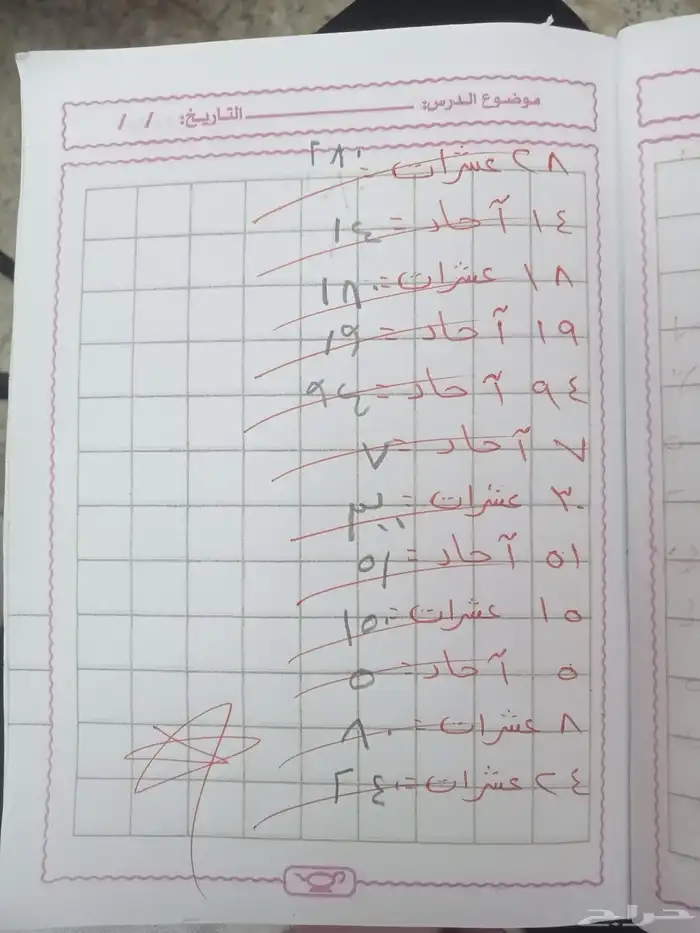 موضوع الدرس: التاريخ: / /
٢٨ عشرات = ٢٨٠
١٤ آحاد = ١٤
١٨ عشرات = ١٨٠
١٩ آحاد = ١٩
٩٤ آحاد = ٩٤
٧ آحاد = ٧
٣٠ عشرات = ٣٠٠
٥١ آحاد = ٥١
١٥ عشرات = ١٥٠
٥ آحاد = ٥
٨ عشرات = ٨٠
٢٤ عشرات = ٢٤٠
حراج